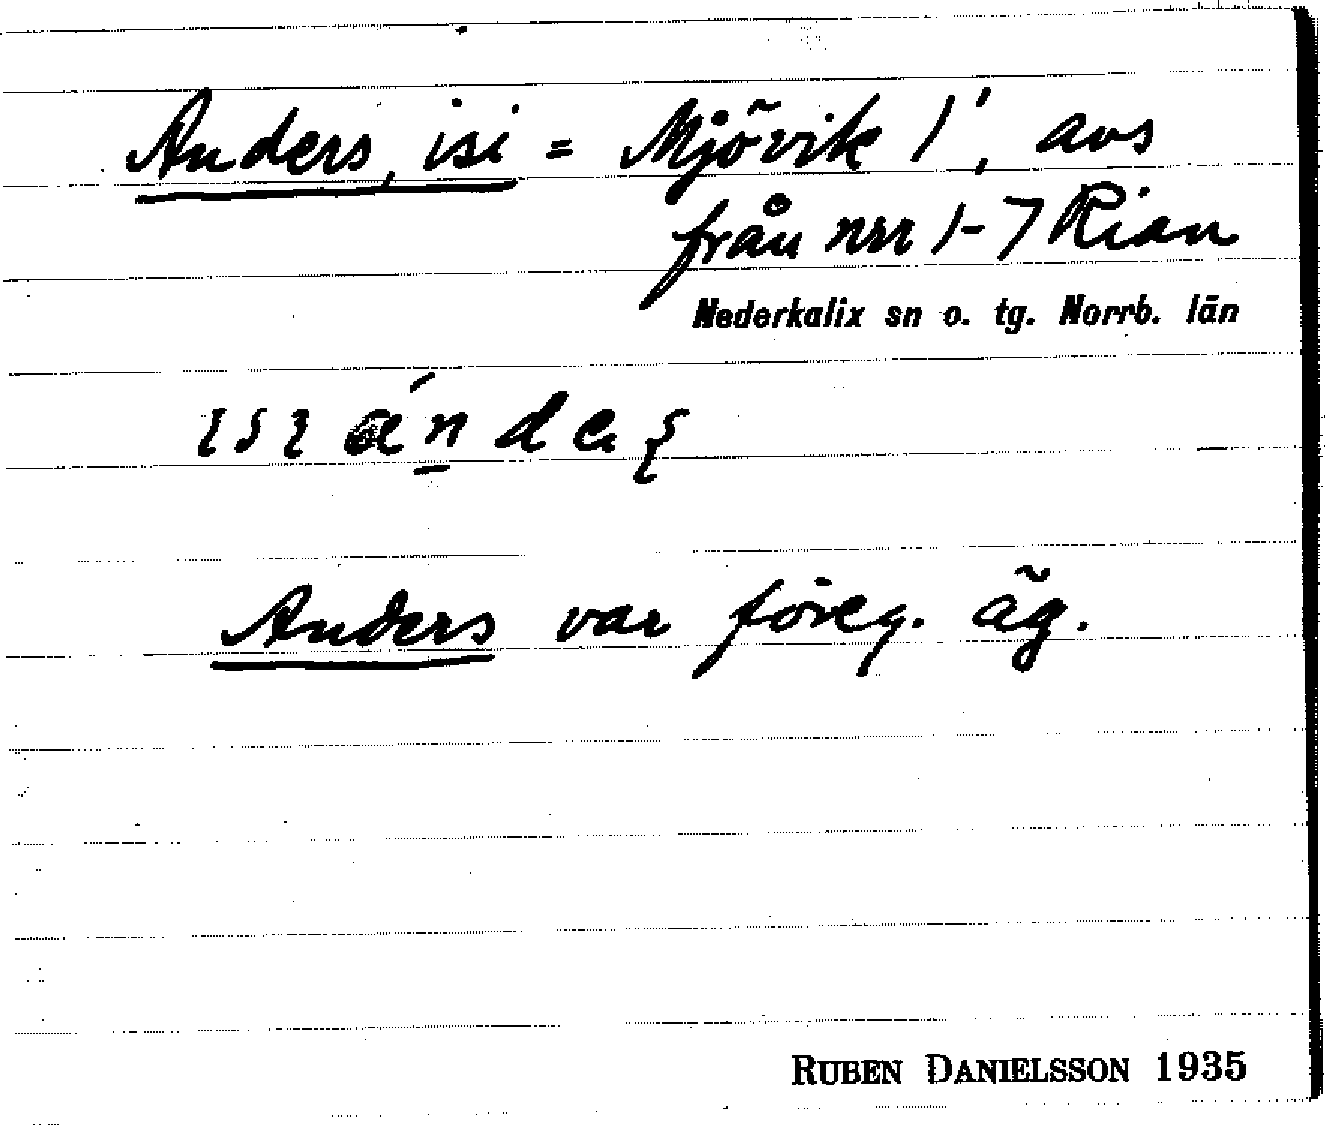 Anders, isi = Mjövik 1¹, avs
från nrr 1-7 Rian
Nederkalix sn o. tg. Norrb. län
Anders var föreg. äg.
RUBEN DANIELSSON 1935